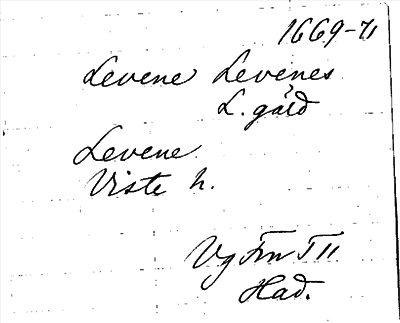 1669-71
Levene Levenes
L. gård
Levene
Viste h.
Vg Frn I 11
Had.